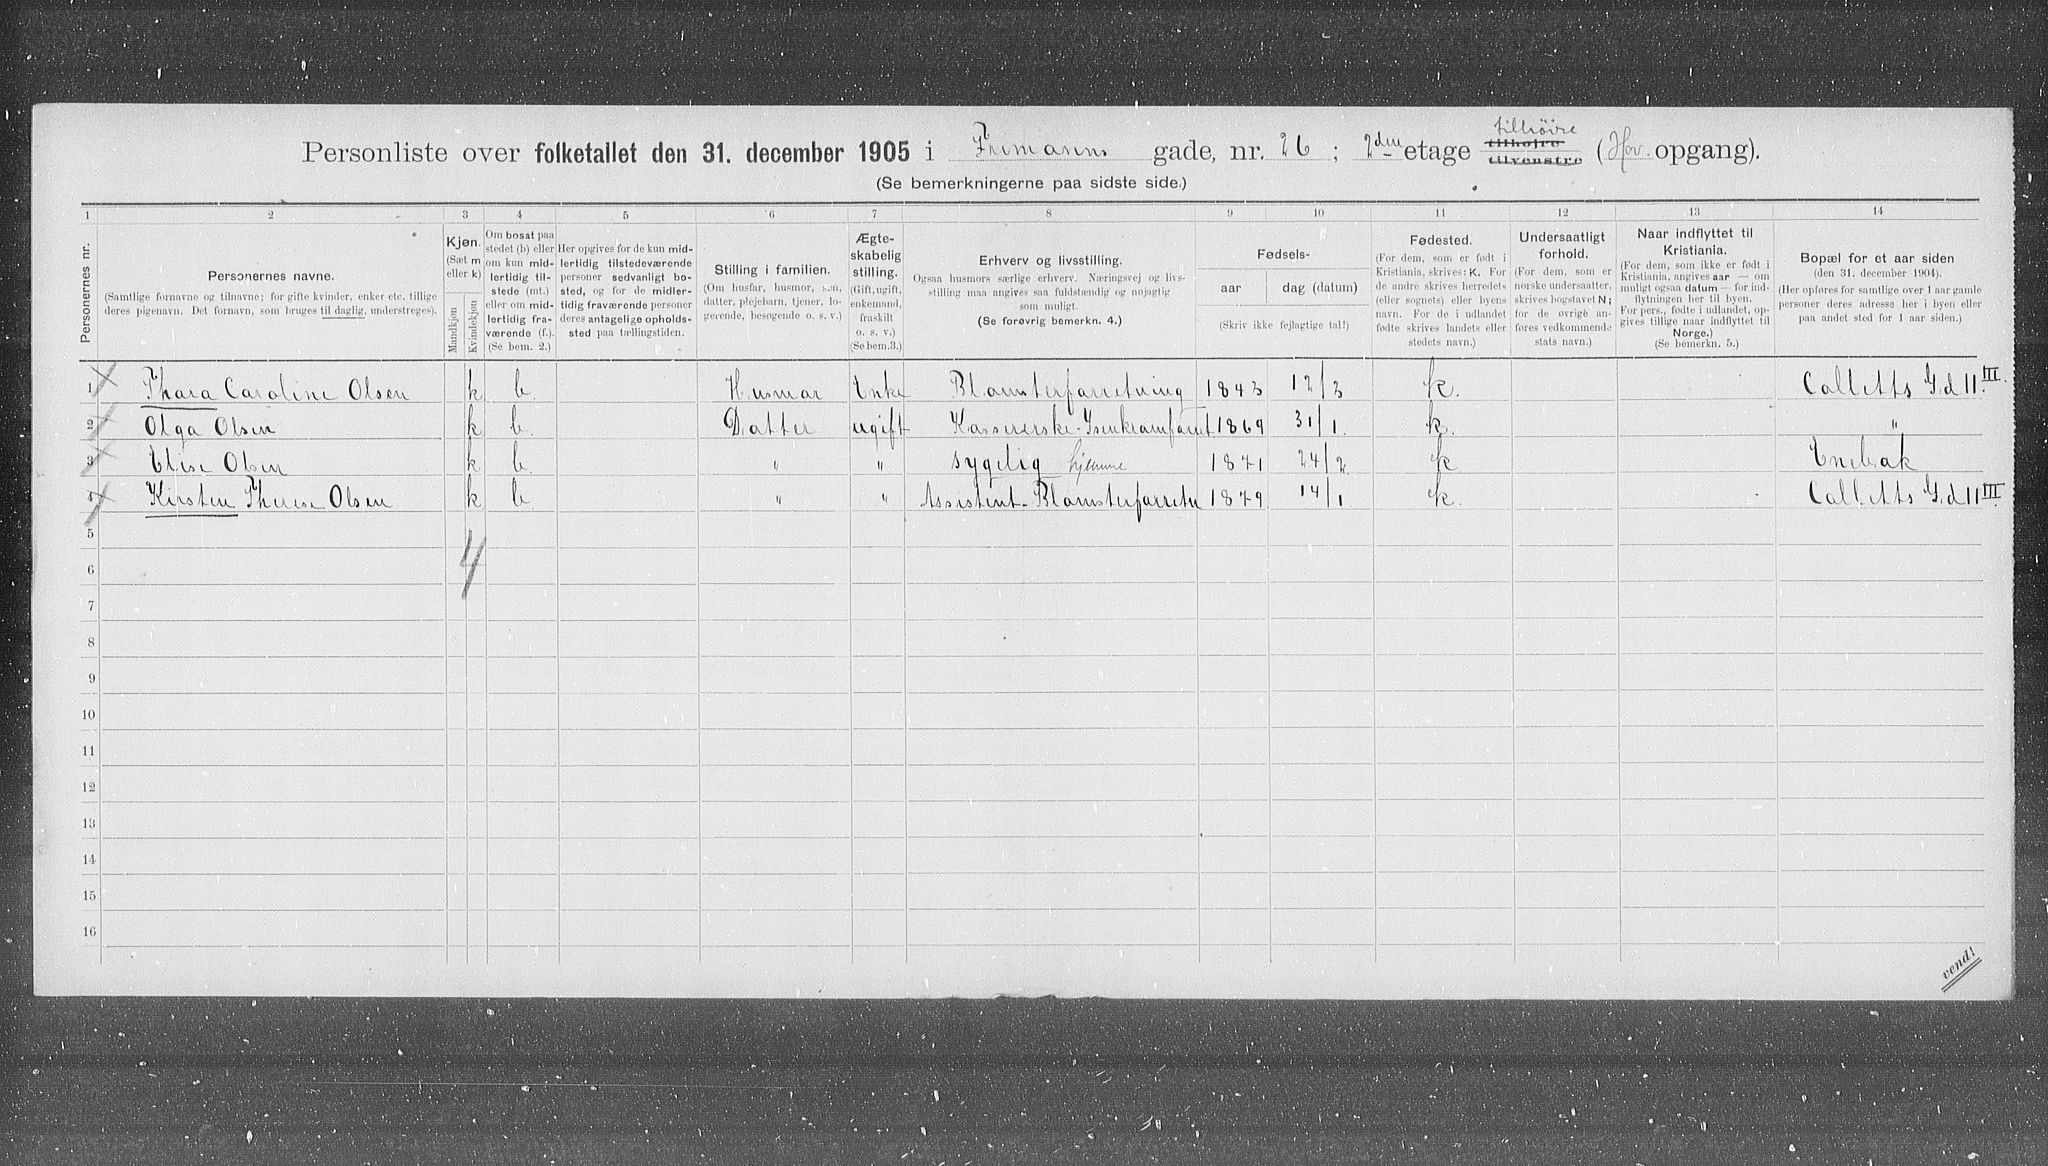 Personliste over folketallet den 31. december 1905 i Frimanns gade, nr. 26; 2den etage tilhøire tilhøjre tilvenstre (Hov. opgang).
(Se bemerkningerne paa sidste side.)
1 2 3 4 5 6 7 8 9 10 11 12 13 14
Personernes nr.
Personernes navne.
(Samtlige fornavne og tilnavne; for gifte kvinder, enker etc. tillige
deres pigenavn. Det fornavn, som bruges til daglig, understreges).
Kjøn.
(Sæt m
eller k)
Mandkjøn
Kvindekjøn
Om bosat paa
stedet (b) eller
om kun mid-
lertidig til-
stede (mt.)
eller om mid-
lertidig fra-
værende (f.).
(Se bem. 2.)
Her opgives for de kun mid-
lertidig tilstedeværende
personer sedvanligt bo-
sted, og for de midler-
tidig fraværende personer
deres antagelige opholds-
sted paa tællingstiden.
Stilling i familien.
(Om husfar, husmor, søn,
datter, plejebarn, tjener, lo-
gerende, besøgende o. s. v.)
Ægte-
skabelig
stilling.
(Gift, ugift,
enkemand,
fraskilt
o. s. v.)
(Se bem.3.)
Erhverv og livsstilling.
Ogsaa husmors særlige erhverv. Næringsvej og livs-
stilling maa angives saa fuldstændig og nøjagtig
som muligt.
(Se forøvrig bemerkn. 4.)
Fødsels-
aar
dag (datum)
(Skriv ikke fejlagtige tal!)
Fødested.
(For dem, som er født i
Kristiania, skrives: K. For
de andre skrives herredets
(eller sognets) eller byens
navn. For de i udlandet
fødte skrives landets eller
stedets navn.)
Undersaatligt
forhold.
(For dem, som er
norske undersaatter,
skrives bogstavet N;
for de øvrige an-
føres vedkommende
stats navn.)
Naar indflyttet til
Kristiania.
(For dem, som ikke er født i
Kristiania, angives aar — om
muligt ogsaa datum — for ind-
flytningen her til byen.
For pers., fødte i udlandet, op-
gives tillige naar indflyttet til
Norge.)
(Se bemerkn. 5.)
Bopæl for et aar siden
(den 31. december 1904).
(Her opføres for samtlige over 1 aar gamle
personer deres adresse her i byen eller
paa andet sted for 1 aar siden.)
1 Thara Caroline Olsen k b. Husmor Enke Blomsterforretning 1843 12/3 k. Colletts Gd 11. III.
2 Olga Olsen k b. Datter ugift Kassererske-Isenkramforret 1869 31/1. k. "
3 Elise Olsen k b. " " sygelig hjemme 1871 24/2 k Enebak
4 Kirsten Therese Olsen k b. " " Assistent-Blomsterforretn 1879 14/1 k. Colletts Gd 11 III.
5
4
6
7
8
9
10
11
12
13
14
15
16
vend!